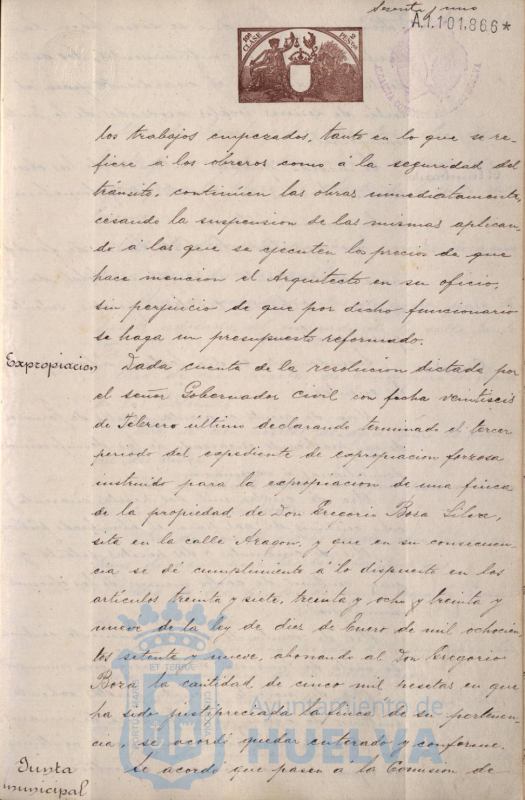 Sesenta y uno
A.1.101.866*
10ª CLASE
2 PESETAS
los trabajos empezados, tanto en lo que se re-
fiere á los obreros como á la seguridad del
tránsito, continúen las obras inmediatamente,
cesando la suspension de las mismas aplican-
do á las que se ejecuten los precios de que
hace mencion el Arquitecto en su oficio,
sin perjuicio de que por dicho funcionario
se haga un presupuesto reformado.
Expropiacion
Dada cuenta de la resolucion dictada por
el señor Gobernador Civil con fecha veintiseis
de Febrero último declarando terminado el tercer
periodo del expediente de expropiacion forzosa
instruido para la expropiacion de una finca
de la propiedad de Don Gregorio Boza Silva,
sita en la calle Aragon, y que en su consecuen-
cia se dé cumplimiento á lo dispuesto en los
artículos treinta y siete, treinta y ocho y treinta y
nueve de la ley de diez de Enero de mil ochocien
tos setenta y nueve, abonando al Don Gregorio
Boza la cantidad de cinco mil pesetas en que
ha sido justipreciada la finca de su pertenen-
cia, se acordó quedar enterado y conforme.
Junta
municipal
Se acordó que pasen á la Comision de
Ayuntamiento de
HUELVA